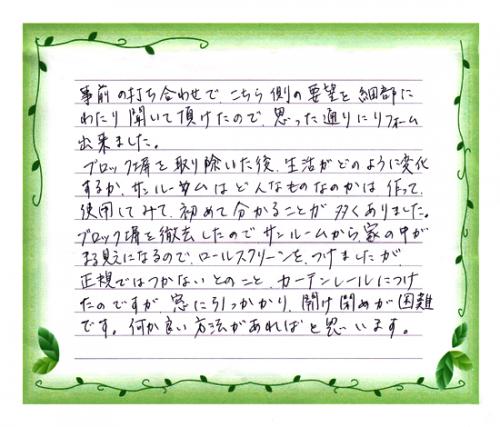 事前の打ち合わせで、こちら側の要望を細部に
わたり聞いて頂けたので、思った通りにリフォーム
出来ました。
ブロック塀を取り除いた後、生活がどのように変化
するか、サンルームはどんなものなのかは作って、
使用してみて、初めて分かることが多くありました。
ブロック塀を撤去したのでサンルームから、家の中が
まる見えになるので、ロールスクリーンを、つけましたが
正規ではつかないとのこと、カーテンレールにつけ
たのですが、窓に引っかかり、開け閉めが困難
です。何か良い方法があればと思います。